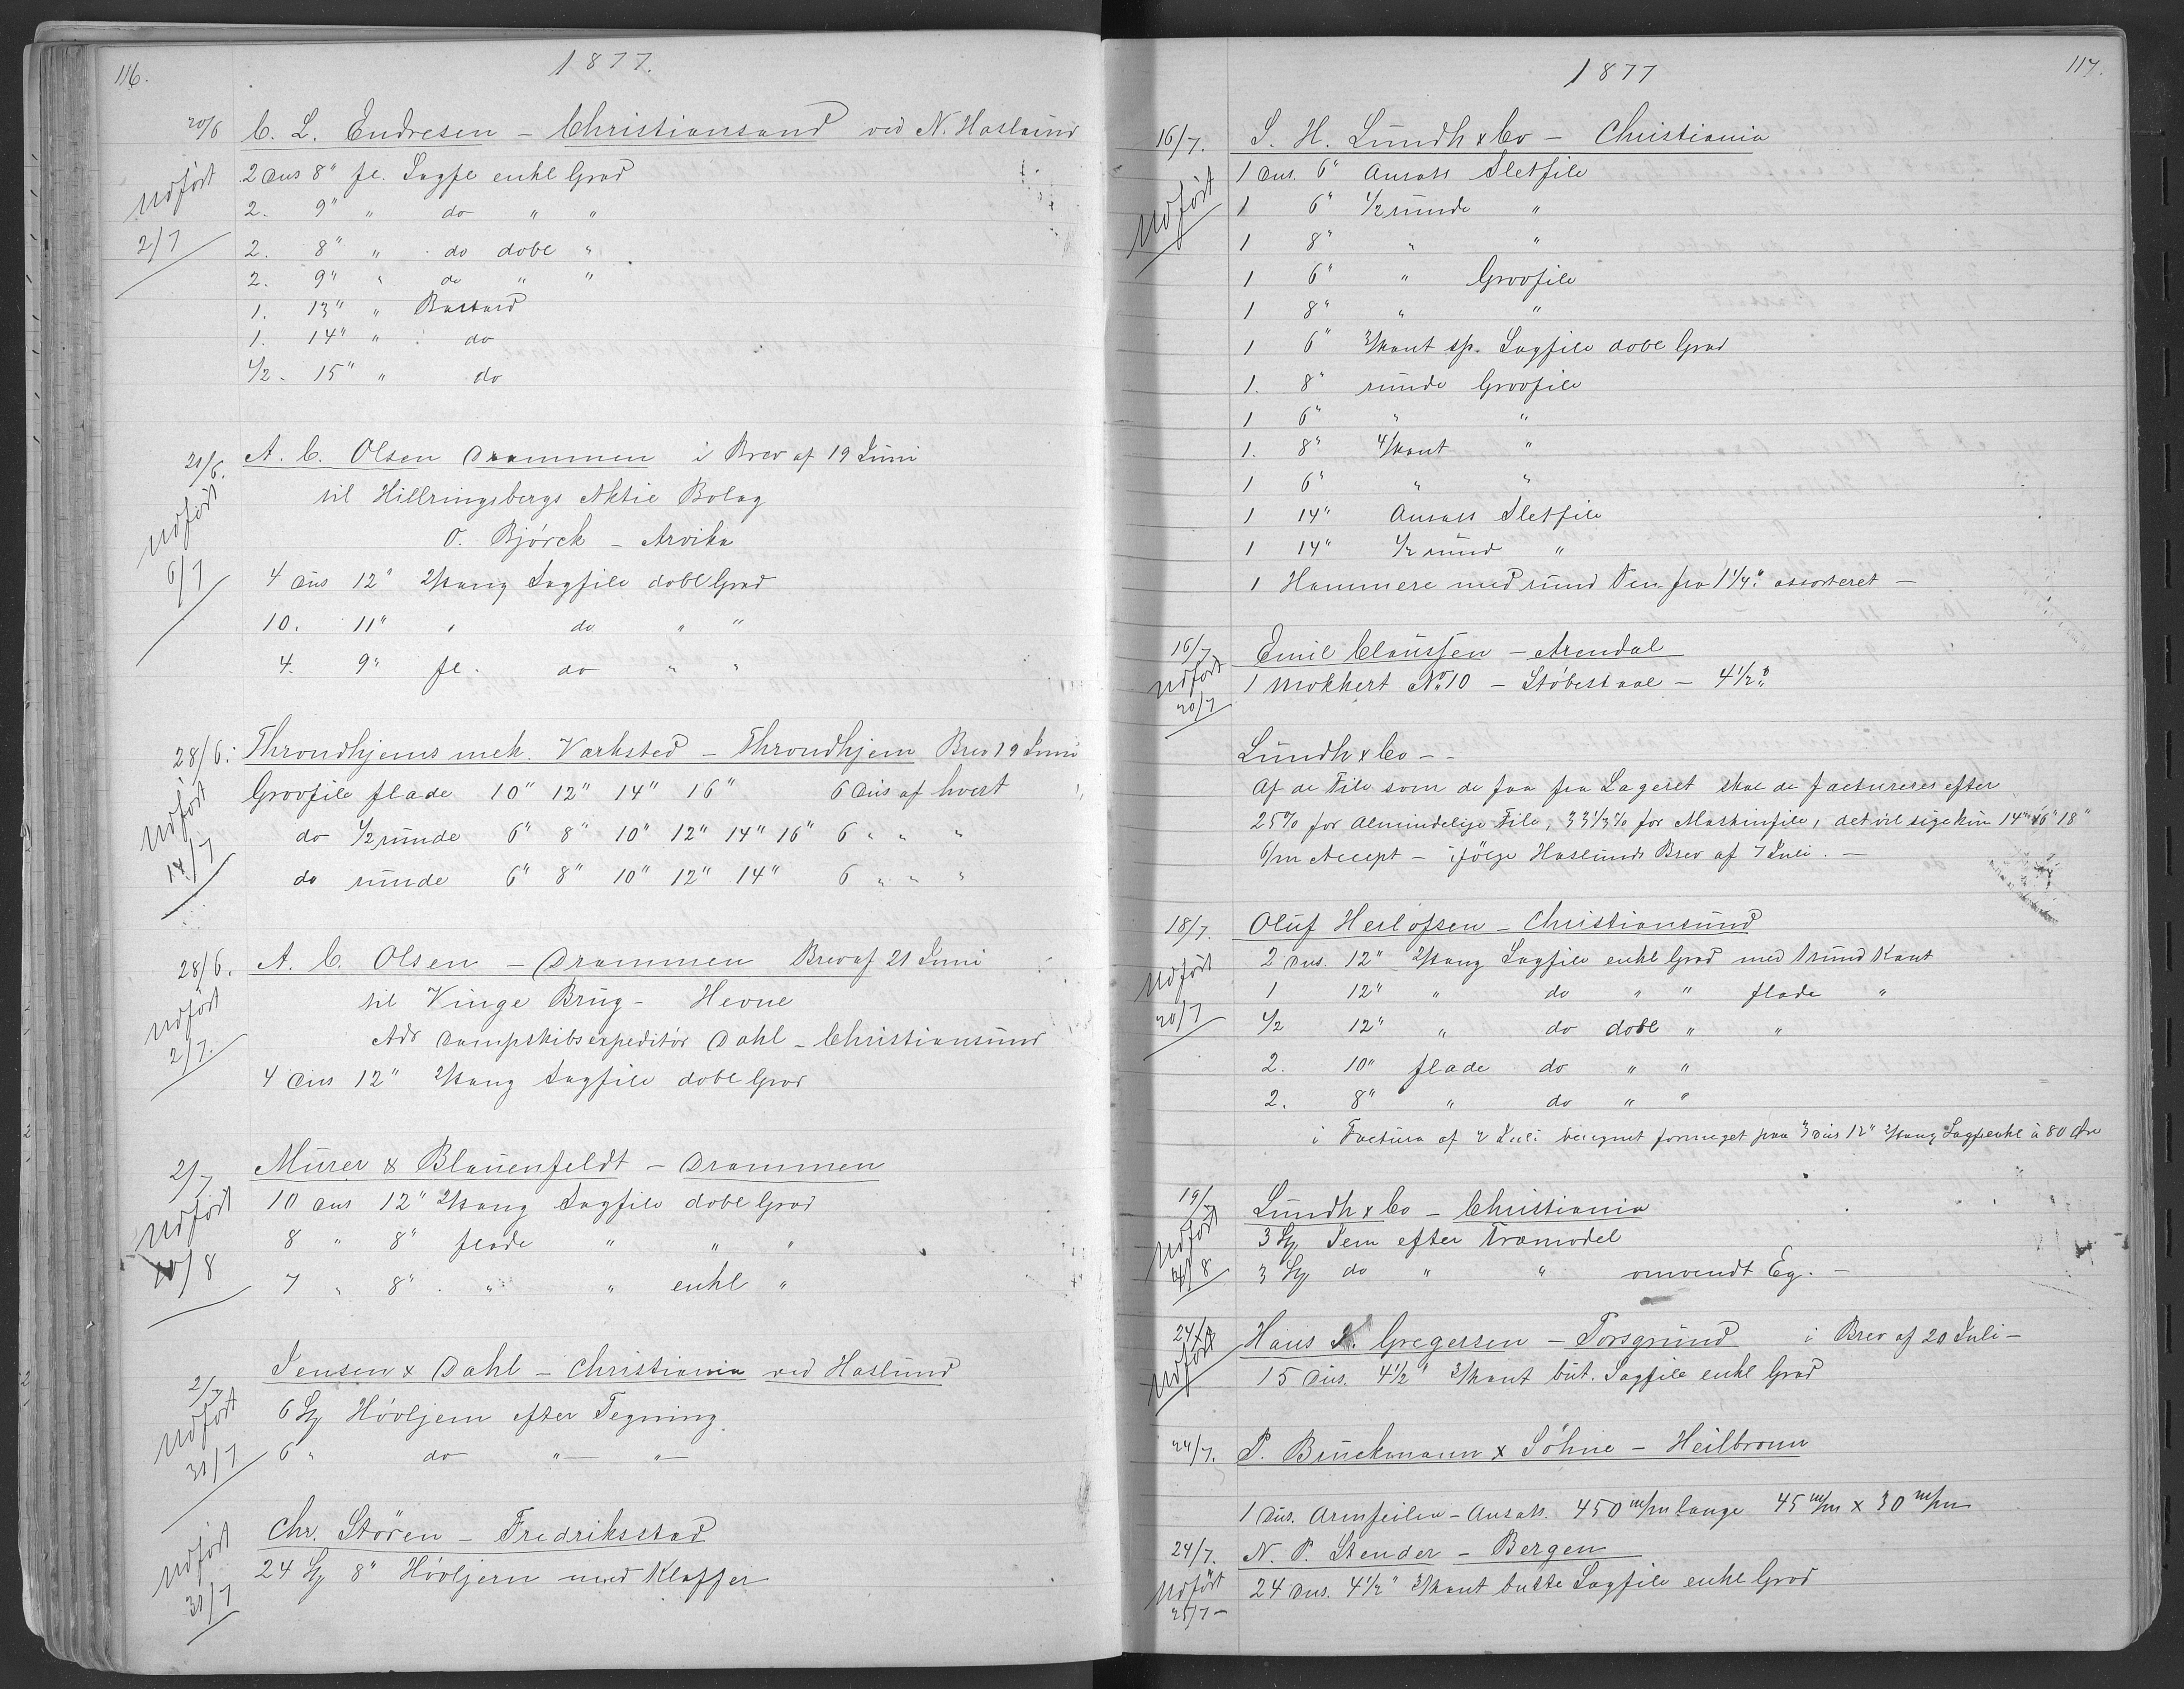 116.
1877.
20/6 C. L. Endresen – Christiansand ved N. Haslund
Udført 2 Dus 8" fl. Sagfl enkl Grad
2. 9" " do " "
2/7 2. 8" " do dobl "
2. 9" " do " "
1. 13" " Bastard
1. 14" " do
1/2. 15" " do
21/6. A. C. Olsen Drammen i Brev af 19 Juni
Udført til Hillringsbergs Aktie Bolag
O. Bjørck – Arvika
6/7 4 Dus 12" 2/kang Sagfile dobl Grad
10. 11" " do " "
4. 9" fl. do " "
28/6. Throndhjems mek. Værksted – Throndhjem Brev 19 Juni
Udført Grovfile flade 10" 12" 14" 16" 6 Dus af hvert
do 1/2 runde 6" 8" 10" 12" 14" 16" 6 " " "
14/7 do runde 6" 8" 10" 12" 14" 6 " " "
28/6. A. C. Olsen – Drammen Brev af 21 Juni
Udført til Vinge Brug – Hevne
Adr Dampskibsexpeditør Dahl – Christiansund
2/7. 4 Dus 12" 2/kang Sagfile dobl Grad
2/7 Murer & Blauenfeldt – Drammen
Udført 10 Dus 12" 2/kang Sagfile dobl Grad
8 " 8" flade " " "
10/8 7 " 8" " " enkl "
Jensen & Dahl – Christiania ved Haslund
2/7 6 St Høvljern efter Tegning
Udført 6 " do " – " –
31/7
Chr. Støren – Fredriksstad
Udført 24 St 8" Høvljern med Klaffer
31/7
117.
1877
16/7. S. H. Lundh & Co – Christiania
Udført 1 Dus. 6" Ansats Sletfile
1 6" 1/2 runde "
1 8" " "
1 6" " Grovfile
1 8" " "
1 6" 3/kant sp. Sagfile dobl Grad
1. 8" runde Grovfile
1 6" " "
1. 8" 4/kant "
1 6" " "
1 14" Ansats Sletfile
1 14" 1/2 rund "
1 Hammere med rund Pen fra 1 1/4 " assorteret –
16/7 Emil Claussen – Arendal
Udført 1 Mokkert No 10 – Støbestaal – 4 1/2
20/7
Lundh & Co – –
Af de File som de faa fra Lageret skal de factureres efter
25% for Almindelige File, 33 1/3% for Maskinfile, det vil sige kun 14" 16" 18"
6/m Accept – ifølge Haslunds Brev af 7 Juli. –
18/7. Oluf Herlofsen – Christiansund
Udført 2 Dus. 12" 2/kang Sagfile enkl Grad med rund Kant
1 12" " do " " flade "
20/7 1/2 12" " do dobl " "
2. 10" flade do " "
2. 8" " do " "
i Factura af 2 Juli beregnet formeget paa 3 Dus 12" 2/kang Sagf enkl à 80 Øre
19/7 Lundh & Co – Christiania
Udført 3 St Jern efter Træmodel
4/8 3 St do " " omvendt Eg. –
24/7 Hans K. Gregersen – Porsgrund i Brev af 20 Juli –
Udført 15 Dus. 4 1/2" 3/kant but. Sagfile enkl Grad
24/7. P. Bruckmann & Söhne – Heilbronn
1 Dus. Armfeilen – Ansats. 450 m/m lange 45 m/m x 30 m/m
24/7. N. P. Stender – Bergen
Udført 24 Dus. 4 1/2" 3/kant butte Sagfile enkl Grad
25/7 –